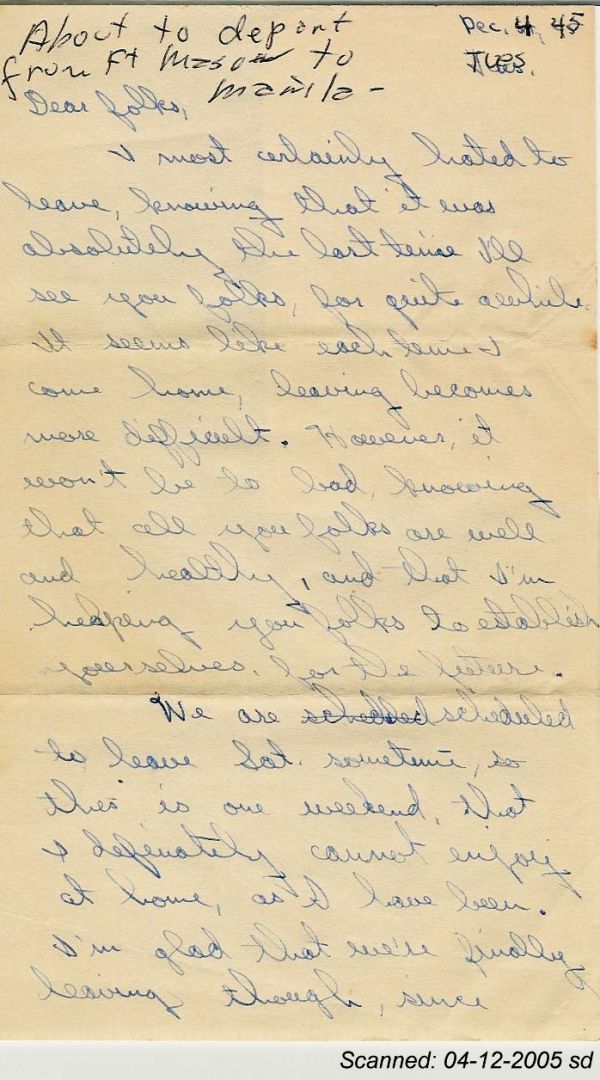 About to depart
from Ft Mason to
Manila -
Dec. 4, 45
Tues.
Dear folks,
I most certainly hated to
leave, knowing that it was
absolutely the last time I'll
see you folks, for quite awhile.
It seems like each time I
come home, leaving becomes
more difficult. However, it
won't be to bad, knowing
that all you folks are well
and healthy, and that I'm
helping you folks to establish
yourselves, for the future.
We are scheduled
to leave Sat. sometime, so
this is one weekend, that
I definately cannot enjoy
at home, as I have been.
I'm glad that we're finally
leaving though, since
Scanned: 04-12-2005 sd